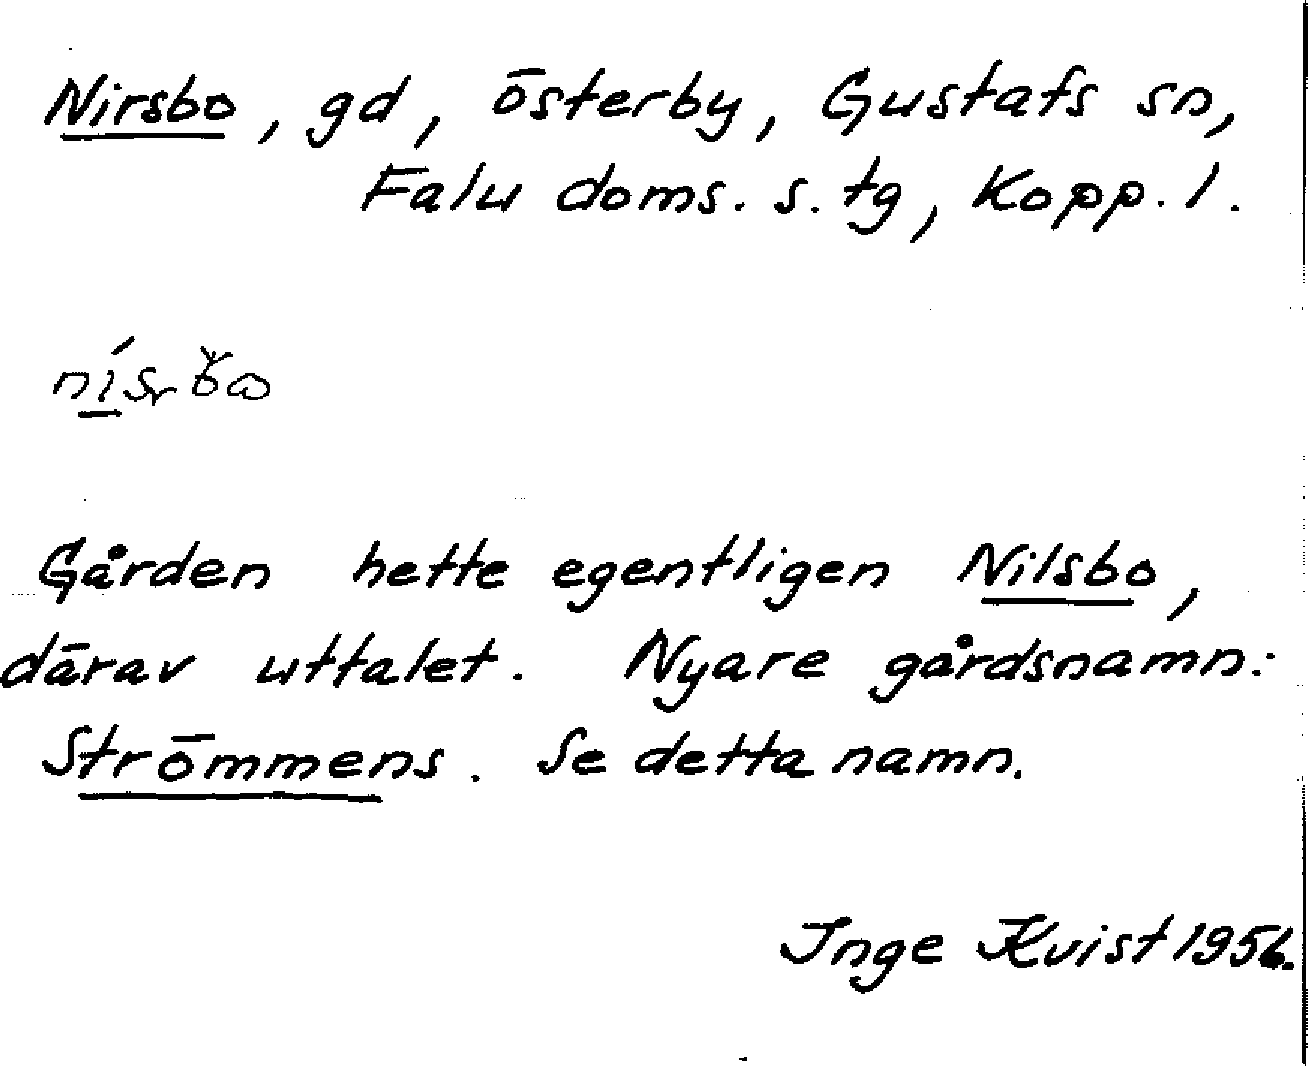 Nirsbo, gd, Österby, Gustafs sn,
Falu doms. s. tg, Kopp. l.
Gården hette egentligen Nilsbo,
därav uttalet. Nyare gårdsnamn:
Strömmens. Se detta namn.
Inge Kvist 1956.